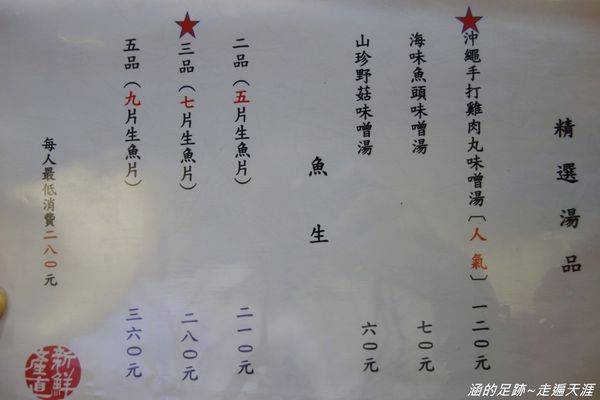 精選湯品
沖繩手打雞肉丸味噌湯〔人氣〕 一二○元
海味魚頭味噌湯 七○元
山珍野菇味噌湯 六○元
魚生
二品（五片生魚片） 二一○元
三品（七片生魚片） 二八○元
五品（九片生魚片） 三六○元
每人最低消費二八○元
新鮮
產直
涵的足跡~走遍天涯